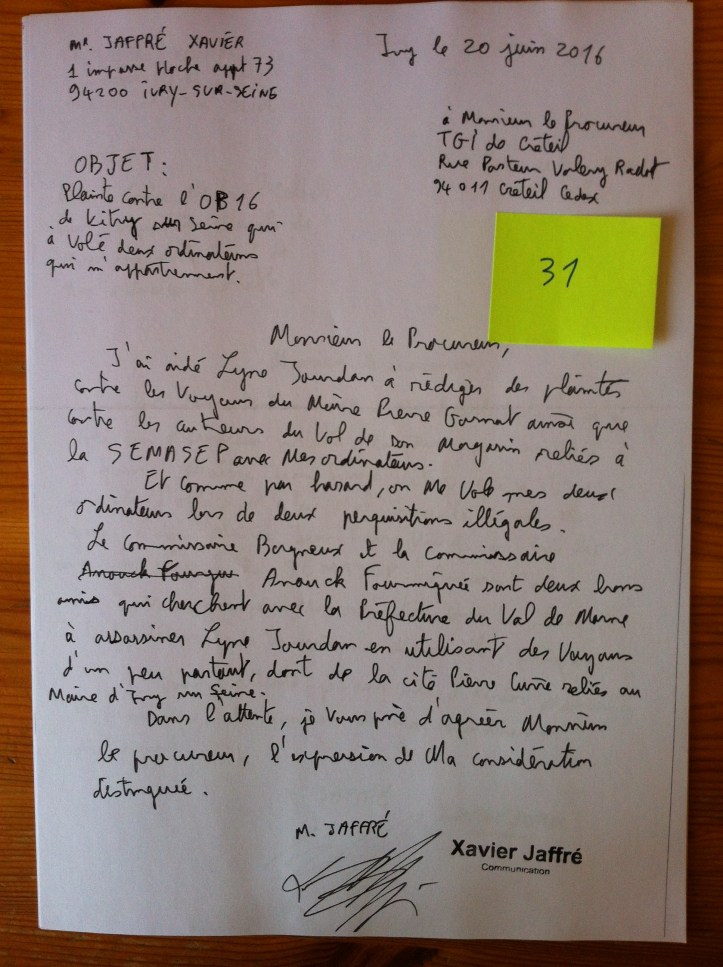 Mr. JAFFRÉ XAVIER
1 impasse Hoche appt 73
94200 IVRY-SUR-SEINE
Ivry le 20 juin 2016
à Monsieur le Procureur
TGI de Créteil
Rue Pasteur Valery Radot
94011 Créteil Cedex
OBJET :
Plainte contre l'OB16
de Kitry sur Seine qui
à Volé deux ordinateurs
qui m'appartiennent.
31
Monsieur le Procureur,
J'ai aidé Lyne Jourdan à rédiger des plaintes
contre les Voyous du Maire Pierre Gosnat ainsi que
contre les auteurs du Vol de son Magasin reliés à
la SEMASEP avec Mes ordinateurs.
Et comme par hasard, on Me Vole mes deux
ordinateurs lors de deux perquisitions illégales.
Le Commissaire Bergneux et la Commissaire
Anouck Fourmiguée sont deux bons
amis qui cherchent avec la Préfecture du Val de Marne
à assassiner Lyne Jourdan en utilisant des Voyous
d'un peu partout, dont de la cité Pierre Curie reliés au
Maire d'Ivry sur Seine.
Dans l'attente, je Vous prie d'agréer Monsieur
le procureur, l'expression de Ma considération
distinguée.
M. JAFFRÉ
Xavier Jaffré
Communication